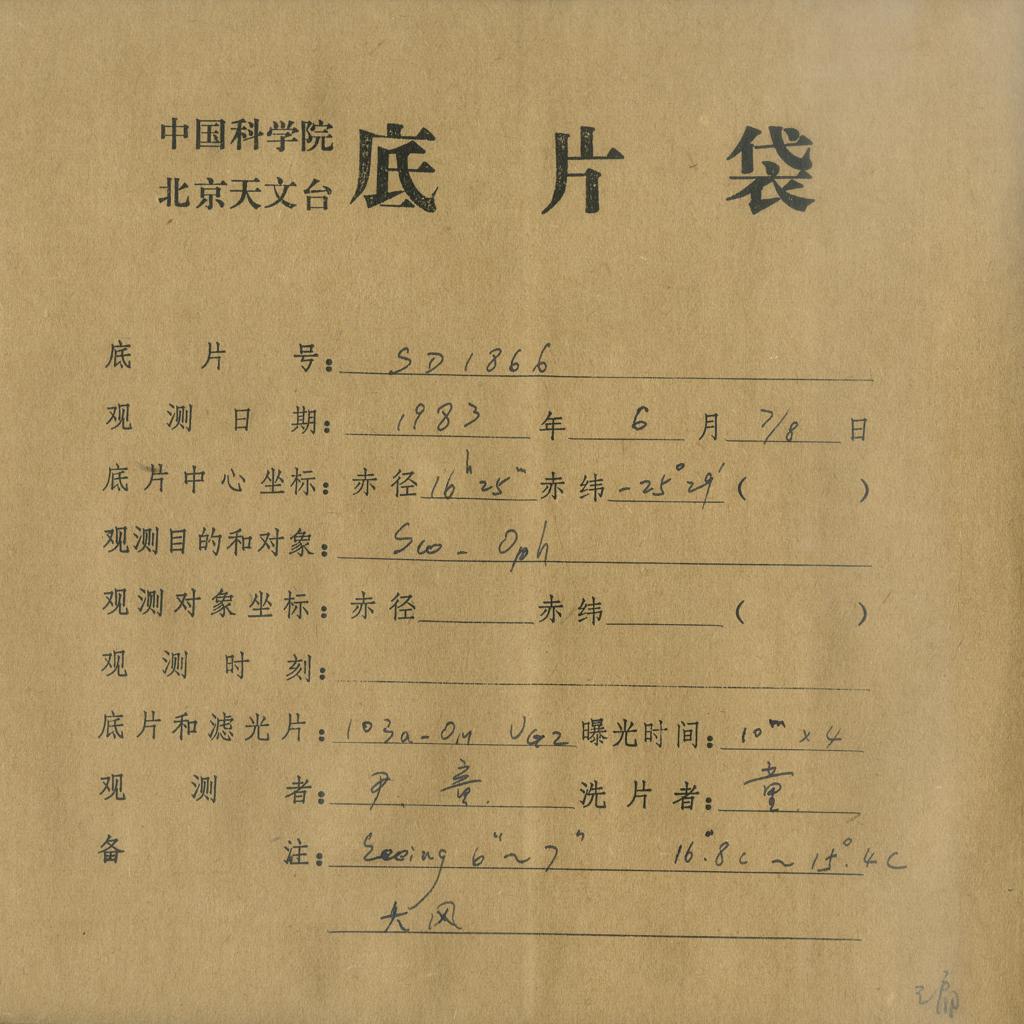 中国科学院
北京天文台
底片袋
底片号：SD1866
观测日期：1983年6月7/8日
底片中心坐标：赤径16h25m赤纬-25°29′（ ）
观测目的和对象：Sco - Oph
观测对象坐标：赤径 赤纬 （ ）
观测时刻：
底片和滤光片：103a-OH UG2 曝光时间：10m x 4
观测者：尹. 童. 洗片者：童.
备注：Seeing 6"~7" 16°.8C ~ 15°.4C
大风